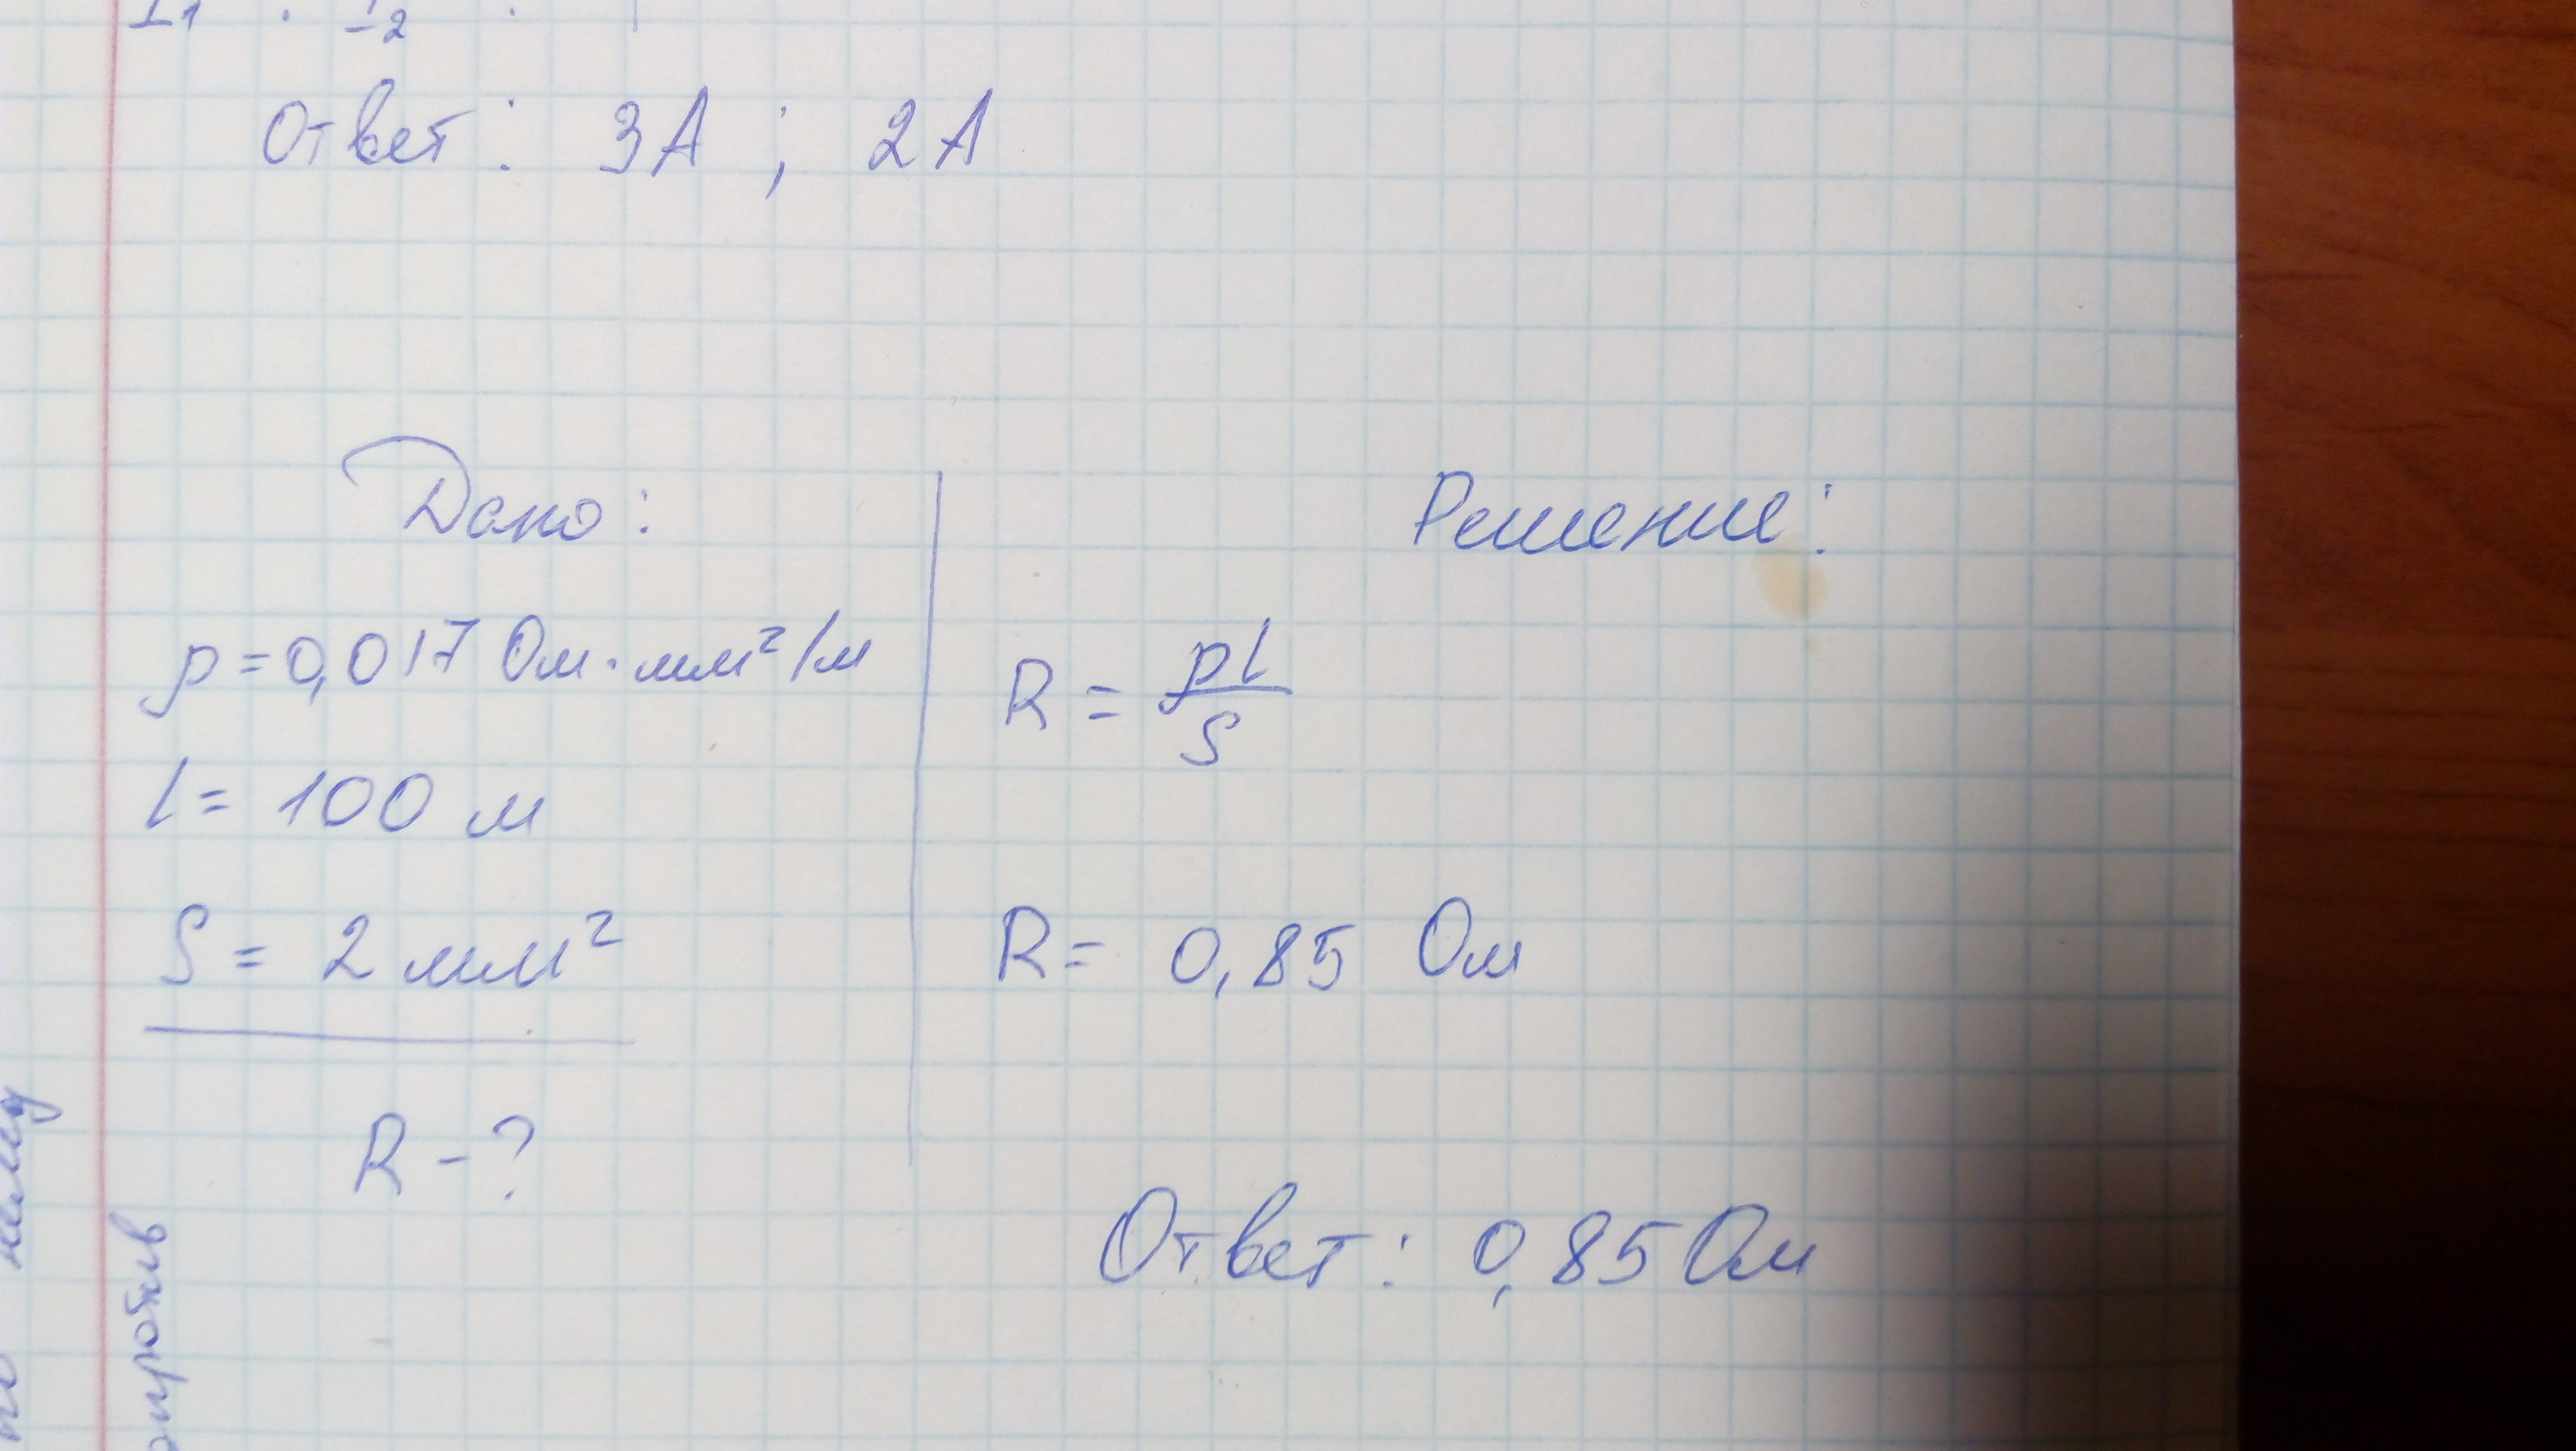 I₁ I₂
Ответ: 3А ; 2А
Дано:
ρ = 0,017 Ом·мм²/м
l = 100 м
S = 2 мм²
R - ?
Решение:
R = ρl/S
R = 0,85 Ом
Ответ: 0,85 Ом